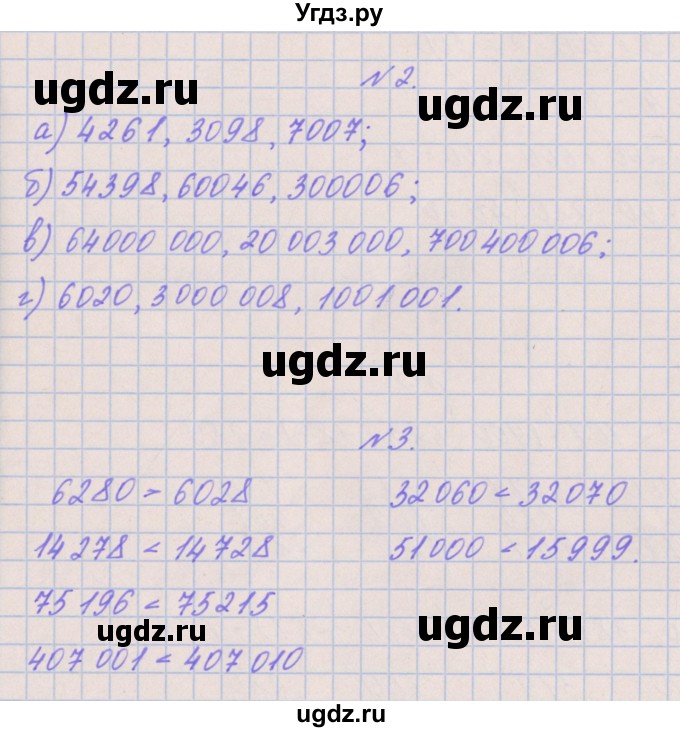 Угдз.ру
№2.
ugdz.ru
ugdz.ru
а) 4261, 3098, 7007;
б) 54398, 60046, 300006;
в) 64000 000, 20 003 000, 700 400 006;
г) 6020, 3 000 008, 1001 001.
ugdz.ru
№3.
6280 > 6028
32 060 < 32 070
14 278 < 14 728
51000 < 15 999.
75 196 < 75 215
ugdz.ru
ugdz.ru
407 001 < 407 010
ugdz.ru